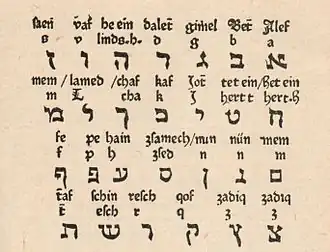 saen vaf he ein dalet gimel Bet Alef
s v linds.h. d g b a
א ב ג ד ה ו ז
mem/lamed/chaf kaf Jot tet ein/het ein
m L cha k J hert t hert.h
ח ט י כ ך ל מ
fe pe hain samech/nun nün mem
f p h sed n n m
ם נ ן ס ע פ ף
taf schin resch qof zadiq zadiq
t esch r q z z
צ ץ ק ר ש ת